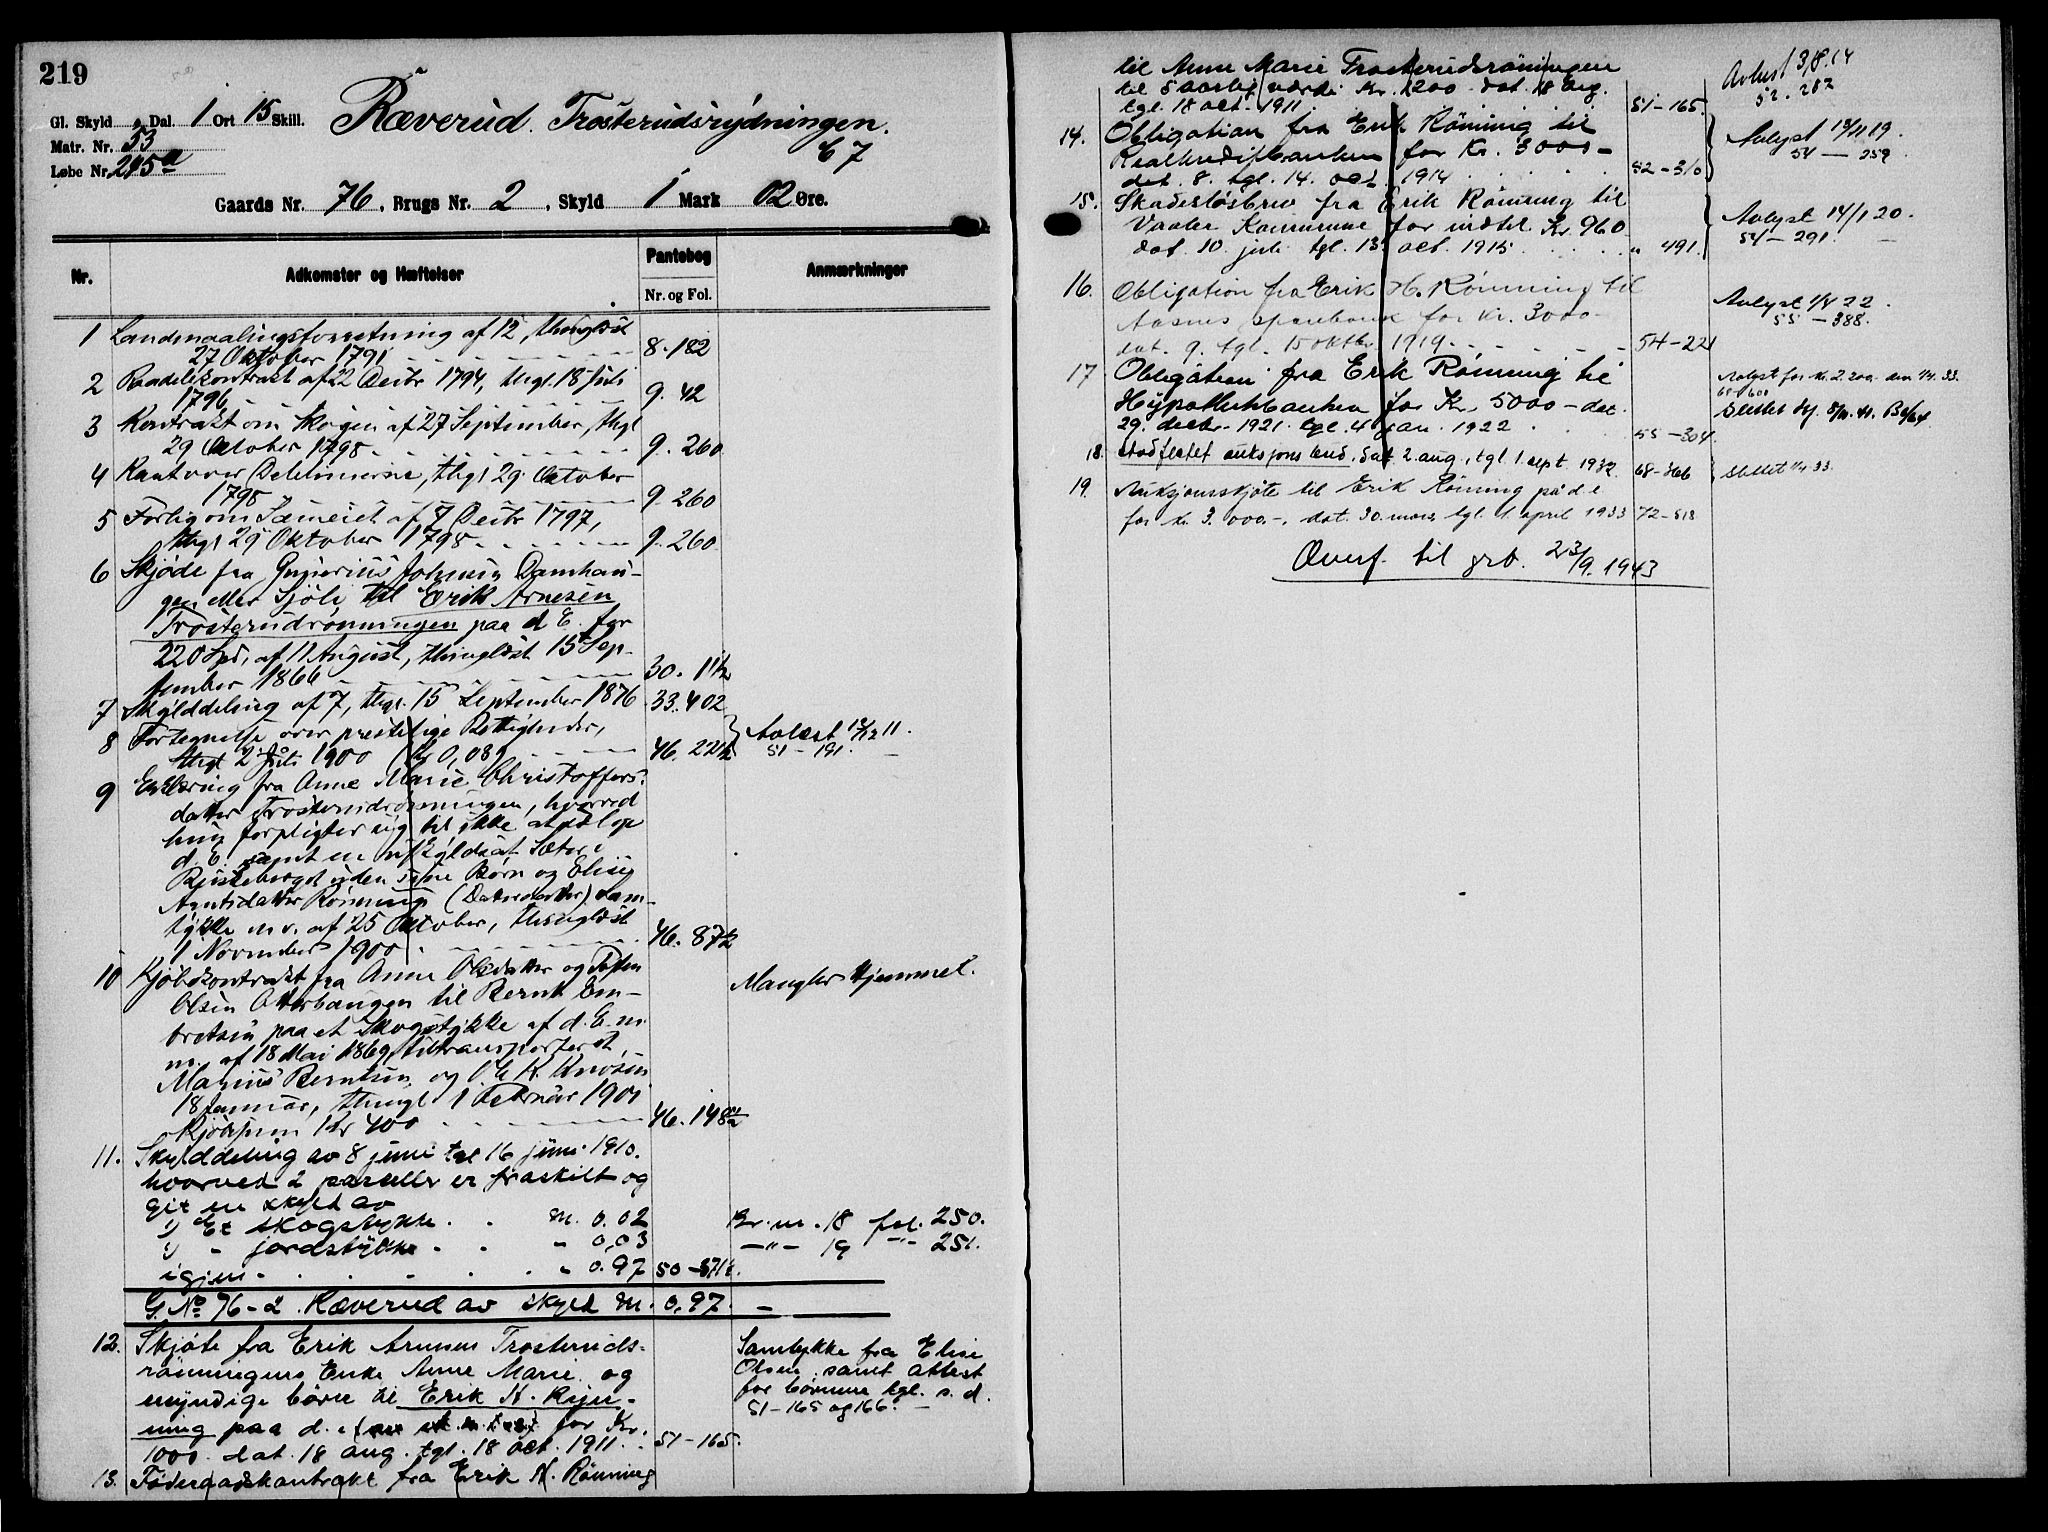 219
Gl. Skyld „ Dal. 1 Ort 15 Skill. Ræverud. Trosterudsrydningen.
Matr. Nr. 53
C 7
Løbe Nr. 215a
Gaards Nr. 76, Brugs Nr. 2, Skyld 1 Mark 02 Øre.
Nr. Adkomster og Hæftelser Pantebog Nr. og Fol. Anmærkninger
1 Landmaalingsforretning af 12, thinglæst
27 Oktober 1791 8. 182
2 Raadelskontrakt af 22 Decbr 1794, thgl. 18 Juli
1796 9. 42
3 Kontrakt om Skogen af 27 September, thgl
29 Oktober 1798 9. 260
4 Kart over Delelinierne, thgl 29 October
1798 9. 260
5 Forlig om Sameiet af 7 Decbr 1797,
thgl 29 Oktober 1798 9. 260
6 Skjøde fra Johnsen Damhau-
gen eller Sjøli til Erik Arnesen
Trosterudrønningen paa d. E. for
220 Spd, af 11 August, thinglæst 15 Sep-
tember 1866 30. 11
7 Skylddeling af 7, thgl. 15 September 1876 33. 402
8 Fortegnelse over prestelige Rettigheder,
thgl 2 Juli 1900 (Kr 0,08) 46. 22 Avlæst 12/12 11.
51 - 191.
9 Erklæring fra Anne Marie Christoffers-
datter Trosterudrønningen, hvorved
hun forpligter sig til ikke at
d. E. samt en uskyldsat Sæter i
uden sine Børn og Elise
Agentsdatter Rønning (Datterdatter) sam-
tykke m.v. af 25 Oktober, thinglæst
1 November 1900 46. 87
10 Kjøbekontrakt fra Anne Olsdatter og
Olsen Otterhaugen til Bernt Em-
bretsen paa et Skogstykke af d. E. m.
m. af 18 Mai 1869, tiltransporteret
Marius Berntsen og
18 Januar, thingl 1 Februar 1901
Kjøbesum Kr 400 46. 148
Mangler Hjemmel.
11. Skylddeling av 8 juni tgl 16 juni 1910.
hvorved 2 parceller er fraskilt og
git en skyld av
1) Et skogstykke. M. 0.02 Br. nr. 18 fol. 250.
2) " jordstykke. " 0,03 —"— 19 —"— 251.
igjen " 0.97 50 -
G. No 76 - 2. Ræverud av skyld M. 0,97. —
12. Skjøte fra Erik Arnesen Trosteruds-
rønningens Enke Anne Marie og
myndige børn til Erik H. Røn-
ning paa d. e. for Kr.
1000. dat. 18 aug. tgl. 18 oct. 1911. 51 - 165.
Samtykke fra Elise
Olsen, samt attest
for børnene tgl. s. d.
51 - 165 og 166. —
13. Føderaadskontrakt fra Erik H. Rønning
til Anne Marie Trosterudsrøningen
til 5 aarlig værdi Kr. 1200 dat. 18 aug.
tgl. 18 oct. 1911 51 - 165. Avlyst 3/8. 14
52. 282
14. Obligation fra Erik Rönning til
Realkreditbanken for Kr. 3000 -
dat. 8. tgl. 14. oct. 1914 52 - 310 Avlyst 14/11 19.
54 — 259.
15. Skadesløsbrev fra Erik Rönning til
Vaaler Kommune for indtil Kr. 960
dat. 10. juli tgl. 13. oct. 1915 " 491. Avlyst 14/1 20.
54 - 291.
16. Obligation fra Erik H. Rønning til
Aasnes sparebank for kr. 3000 -
dat. 9. tgl. 15 oktbr. 1919 54 - 221 Avlyst 1/4 22.
55 - 388.
17 Obligation fra Erik Rønning til
Hypothekbanken for Kr. 5000 - dat.
29. decbr. 1921. tgl. 4 jan. 1922 55 - 304.
Avlyst for kr. 2.200 den 1/4. 33.
18. Stadfestet auksjonsbud. dat 2. aug., tgl. 1. sept. 1932. 68 - 366 Slettet 1/4 33.
19. Auksjonsskjøte til Erik Rønning på d. e
for kr. 3.000.-. dat. 30. mars tgl. 1. april 1933 72 - 518
Overf. til grb. 23/9. 1943